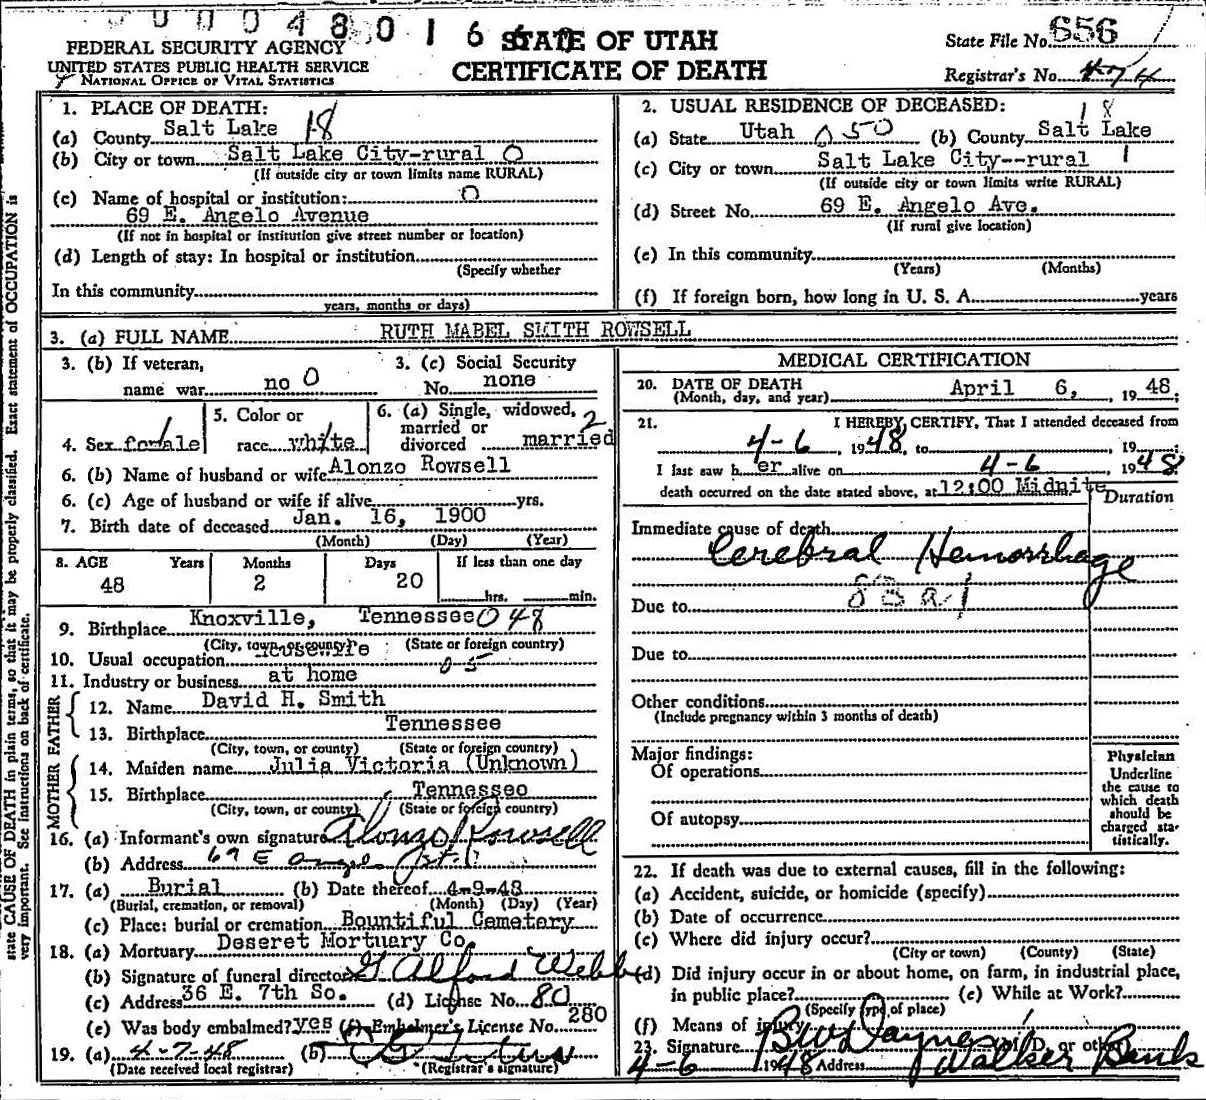 00048016
STATE OF UTAH
CERTIFICATE OF DEATH
FEDERAL SECURITY AGENCY
UNITED STATES PUBLIC HEALTH SERVICE
NATIONAL OFFICE OF VITAL STATISTICS
State File No. 656
Registrar's No. 474
state CAUSE OF DEATH in plain terms, so that it may be properly classified. Exact statement of OCCUPATION is
very important. See instructions on back of certificate.
1. PLACE OF DEATH:
(a) County Salt Lake 18
(b) City or town Salt Lake City-rural 0
(If outside city or town limits name RURAL)
(c) Name of hospital or institution: 0
69 E. Angelo Avenue
(If not in hospital or institution give street number or location)
(d) Length of stay: In hospital or institution
(Specify whether
In this community
years, months or days)
2. USUAL RESIDENCE OF DECEASED: 18
(a) State Utah 050 (b) County Salt Lake
(c) City or town Salt Lake City--rural 1
(If outside city or town limits write RURAL)
(d) Street No. 69 E. Angelo Ave.
(If rural give location)
(e) In this community
(Years) (Months)
(f) If foreign born, how long in U. S. A. years
3. (a) FULL NAME RUTH MABEL SMITH ROWSELL
3. (b) If veteran, name war no 0
3. (c) Social Security No. none
4. Sex female
5. Color or race white
6. (a) Single, widowed, married or divorced married 2
6. (b) Name of husband or wife Alonzo Rowsell
6. (c) Age of husband or wife if alive yrs.
7. Birth date of deceased Jan. 16, 1900
(Month) (Day) (Year)
8. AGE Years Months Days If less than one day
48 2 20 hrs. min.
9. Birthplace Knoxville, Tennessee 048
(City, town, or county) (State or foreign country)
10. Usual occupation housewife 05
11. Industry or business at home
FATHER
12. Name David H. Smith
13. Birthplace Tennessee
(City, town, or county) (State or foreign country)
MOTHER
14. Maiden name Julia Victoria (Unknown)
15. Birthplace Tennessee
(City, town, or county) (State or foreign country)
16. (a) Informant's own signature Alonzo Rowsell
(b) Address 69 E Angelo
17. (a) Burial (b) Date thereof 4-9-48
(Burial, cremation, or removal) (Month) (Day) (Year)
(c) Place: burial or cremation Bountiful Cemetery
18. (a) Mortuary Deseret Mortuary Co.
(b) Signature of funeral director G Alford Webb
(c) Address 36 E. 7th So. (d) License No. 80
(e) Was body embalmed? yes (f) Embalmer's License No. 280
19. (a) 4-7-48 (b)
(Date received local registrar) (Registrar's signature)
MEDICAL CERTIFICATION
20. DATE OF DEATH April 6, 1948;
(Month, day, and year)
21. I HEREBY CERTIFY, That I attended deceased from
4-6, 1948, to , 19 ;
I last saw her alive on 4-6, 1948
death occurred on the date stated above, at 12:00 Midnite
Duration
Immediate cause of death
Cerebral Hemorrhage
83a1
Due to
Due to
Other conditions
(Include pregnancy within 3 months of death)
Major findings:
Of operations
Of autopsy
Physician
Underline
the cause to
which death
should be
charged sta-
tistically.
22. If death was due to external causes, fill in the following:
(a) Accident, suicide, or homicide (specify)
(b) Date of occurrence
(c) Where did injury occur?
(City or town) (County) (State)
(d) Did injury occur in or about home, on farm, in industrial place,
in public place? (e) While at Work?
(Specify type of place)
(f) Means of injury
23. Signature M. D. or other
4-6 1948 Address Walker Bank